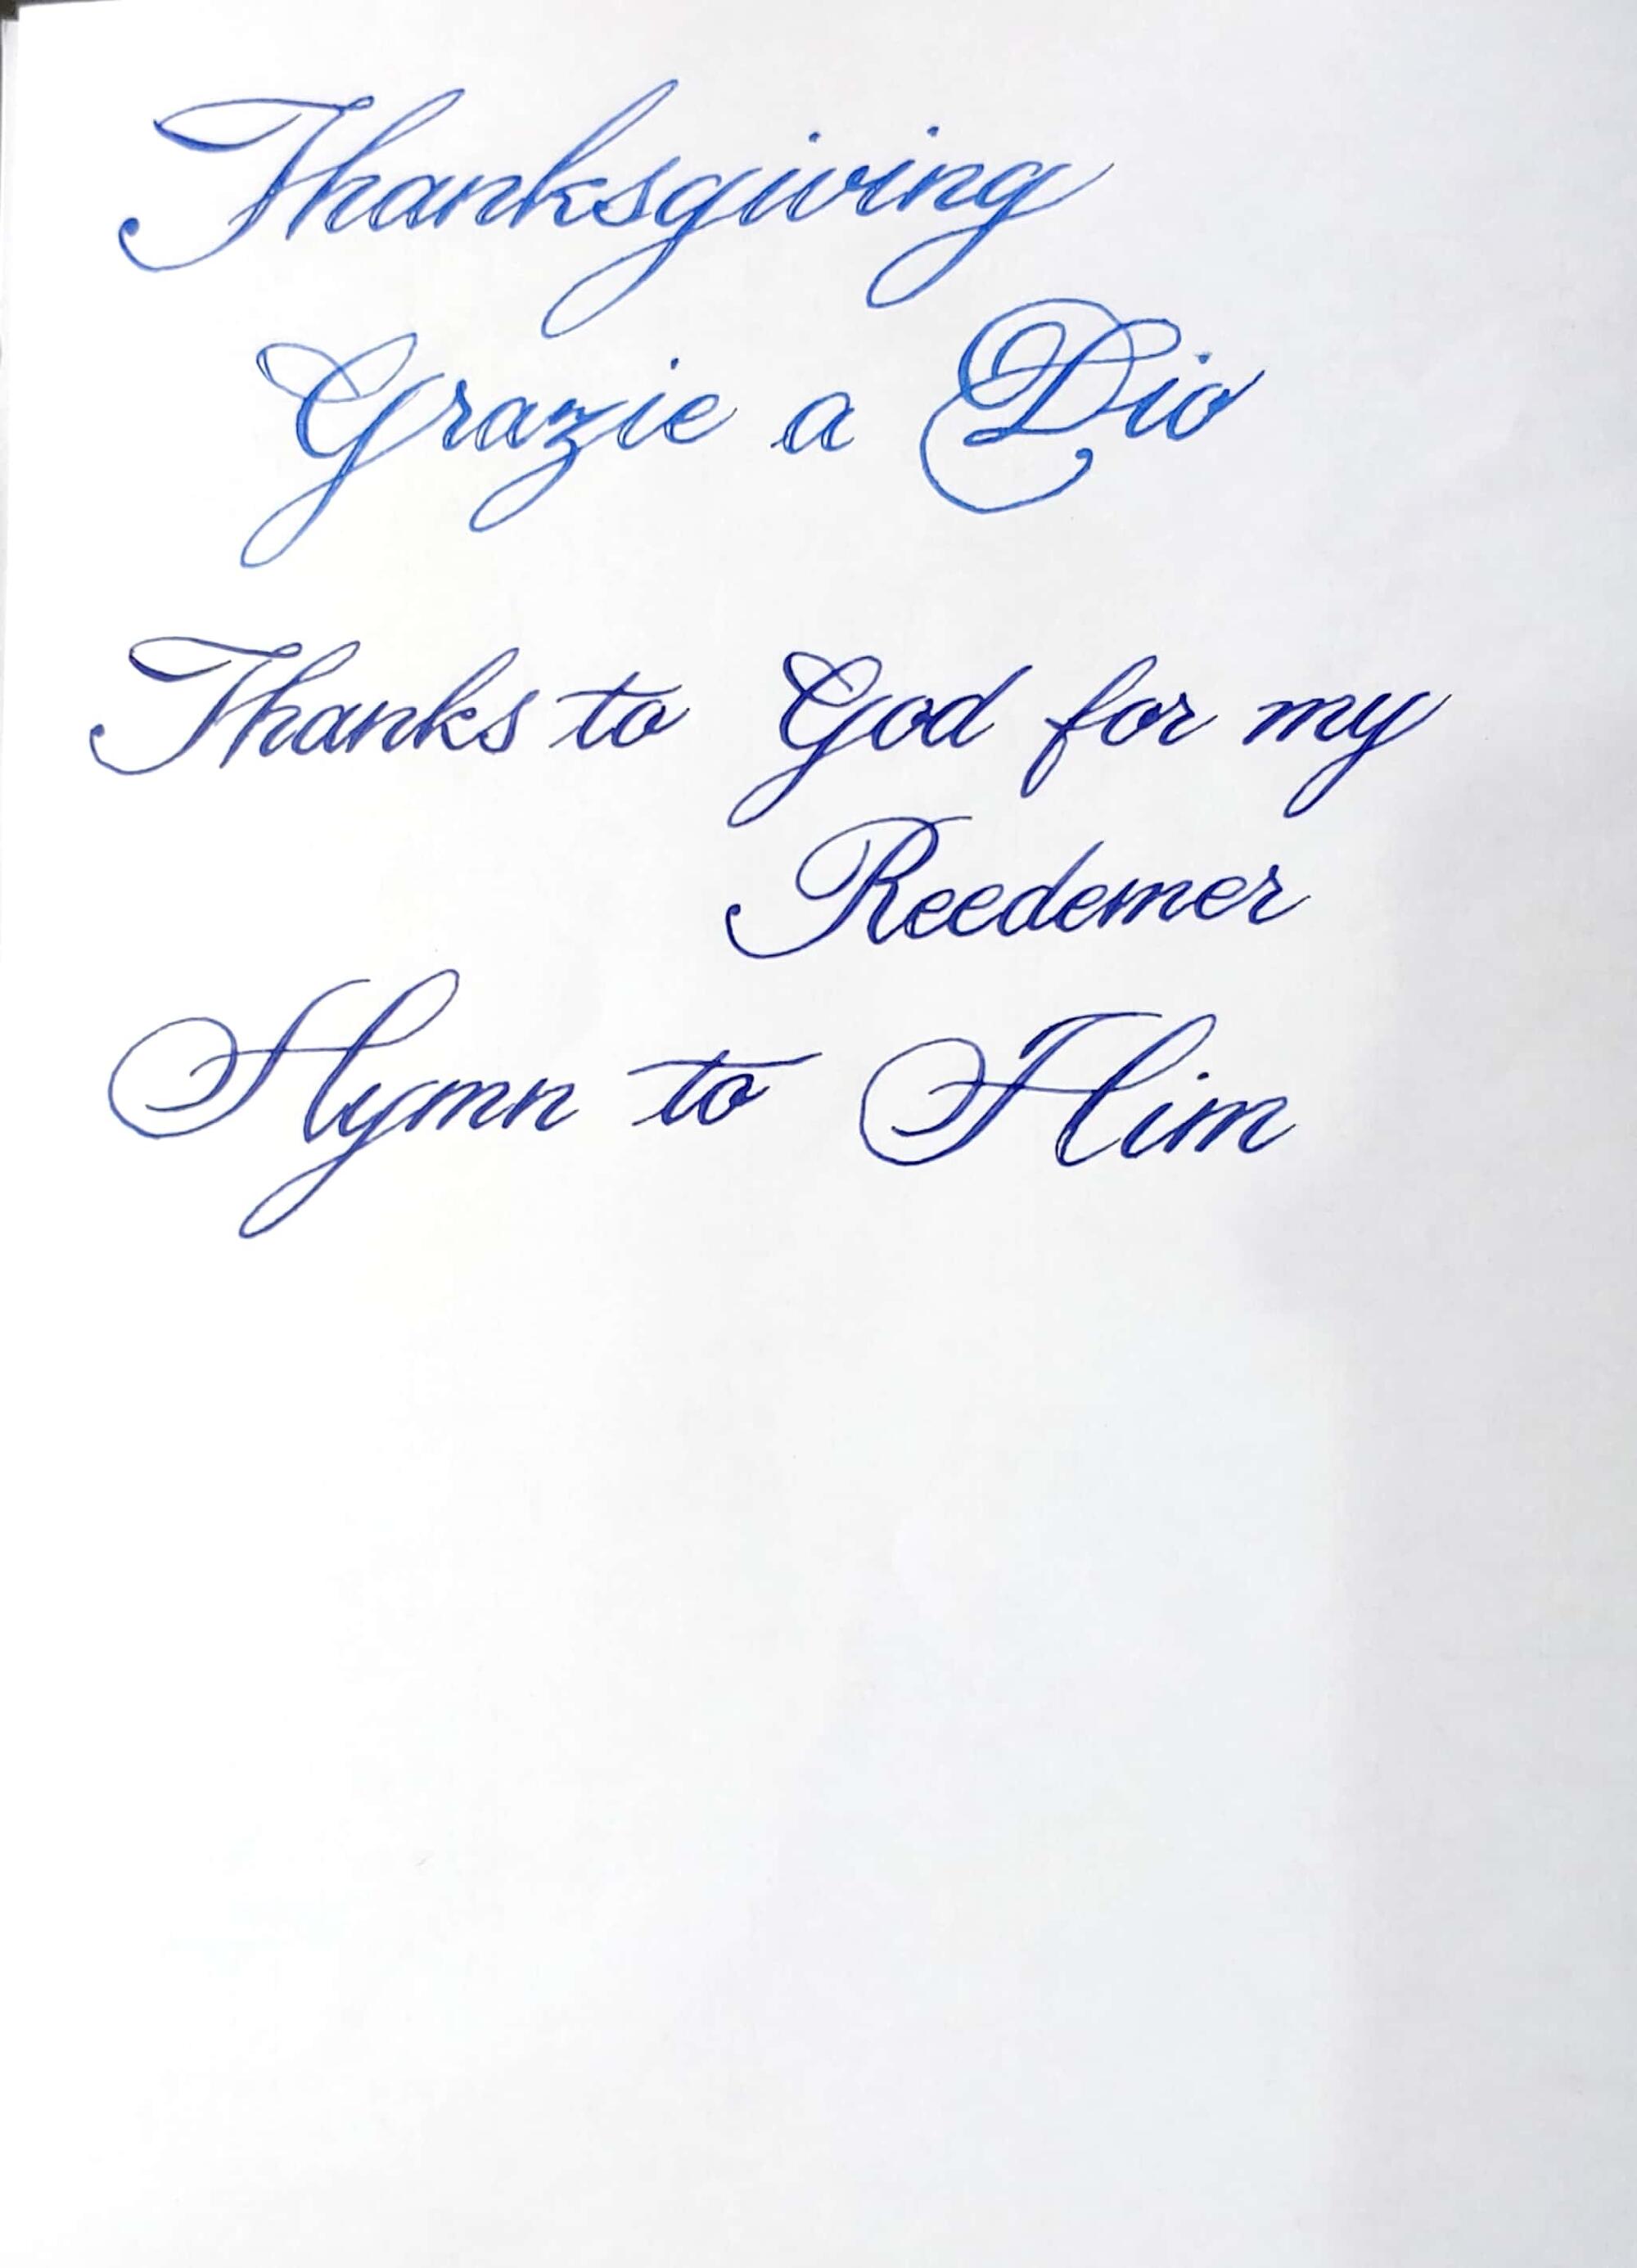 Thanksgiving
Grazie a Dio
Thanks to God for my
Reedemer
Hymn to Him